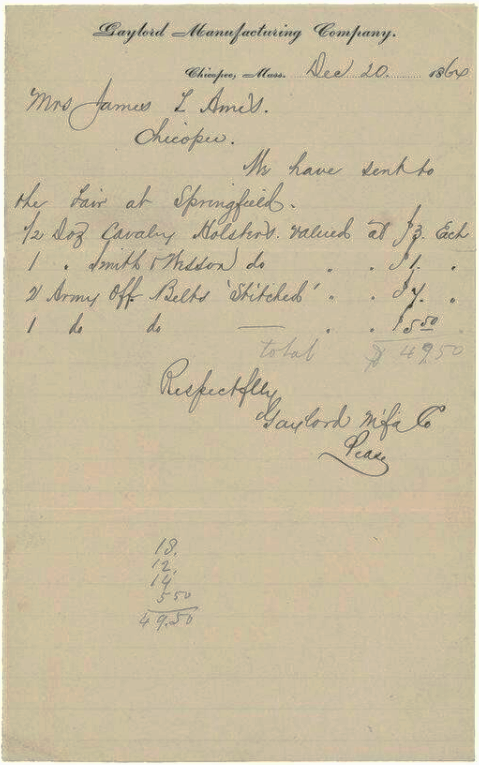 Gaylord Manufacturing Company.
Chicopee, Mass. Dec 20 1864
Mrs James T. Ames.
Chicopee.
We have sent to
the Fair at Springfield.
1/2 Doz Cavalry Holsters. valued at $3. Each
1 " Smith & Wesson do " " $1. "
2 Army Off Belts 'Stitched' " " $7. "
1 do do — " " $5.50 "
total $49.50
Respectflly
Gaylord M'f'g Co
Pease
18.
12.
14
5 50
49.50